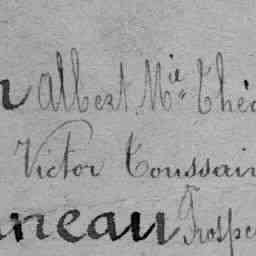 r Albert Mie Théo
Victor Toussain
neau Prospe